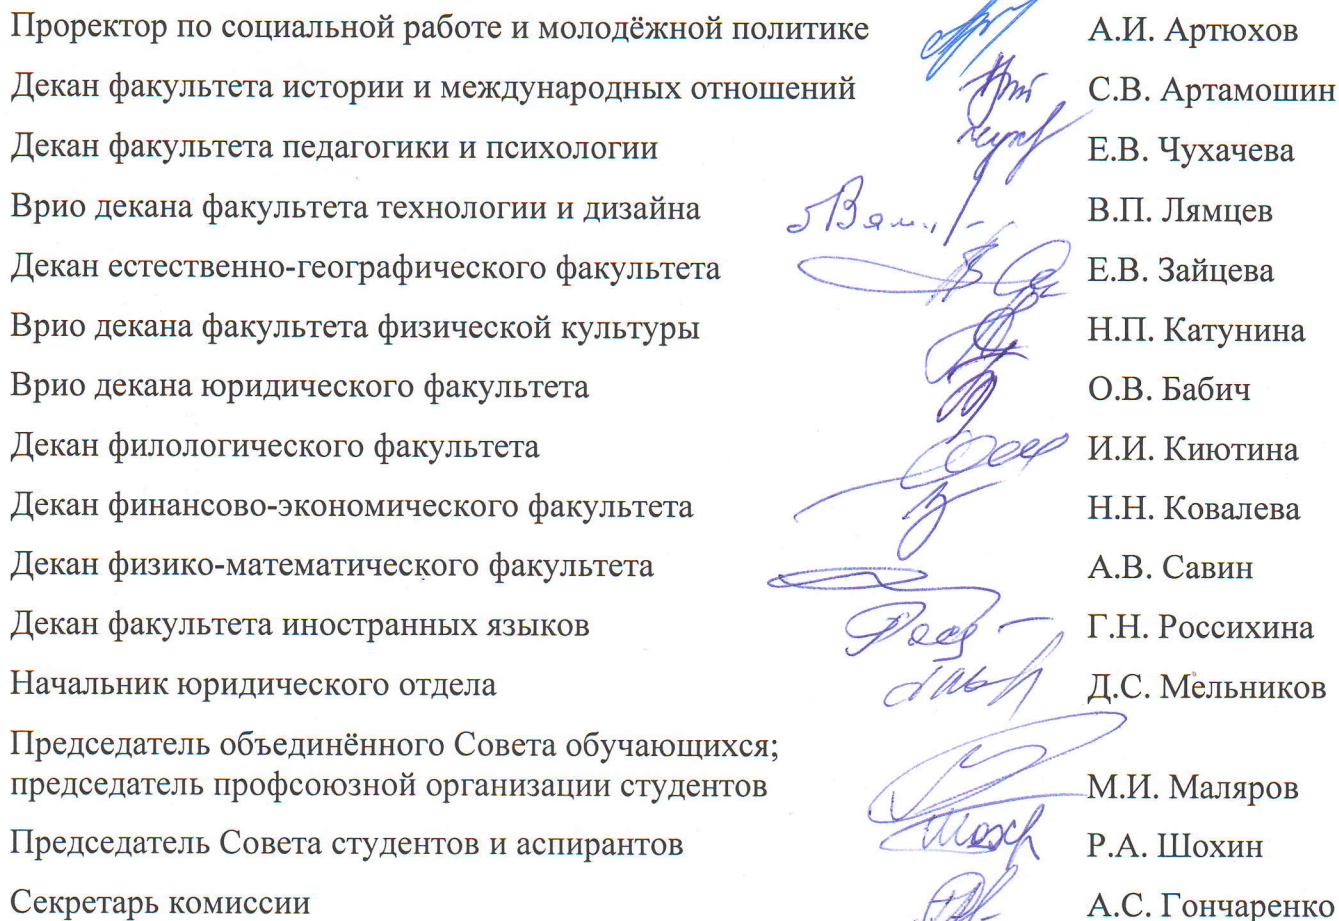 Проректор по социальной работе и молодёжной политике А.И. Артюхов
Декан факультета истории и международных отношений С.В. Артамошин
Декан факультета педагогики и психологии Е.В. Чухачева
Врио декана факультета технологии и дизайна В.П. Лямцев
Декан естественно-географического факультета Е.В. Зайцева
Врио декана факультета физической культуры Н.П. Катунина
Врио декана юридического факультета О.В. Бабич
Декан филологического факультета И.И. Киютина
Декан финансово-экономического факультета Н.Н. Ковалева
Декан физико-математического факультета А.В. Савин
Декан факультета иностранных языков Г.Н. Россихина
Начальник юридического отдела Д.С. Мельников
Председатель объединённого Совета обучающихся;
председатель профсоюзной организации студентов М.И. Маляров
Председатель Совета студентов и аспирантов Р.А. Шохин
Секретарь комиссии А.С. Гончаренко